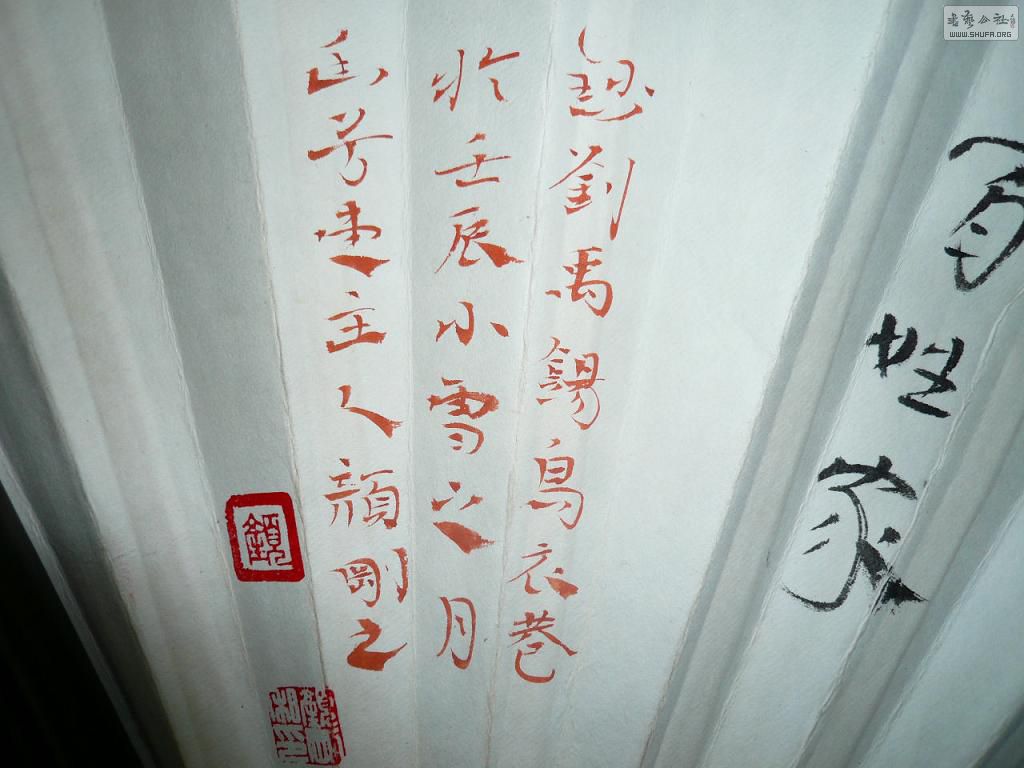 百姓家
劉禹錫烏衣巷
於壬辰小雪之月
芳 主人顏剛之
書藝公社
WWW.SHUFA.ORG